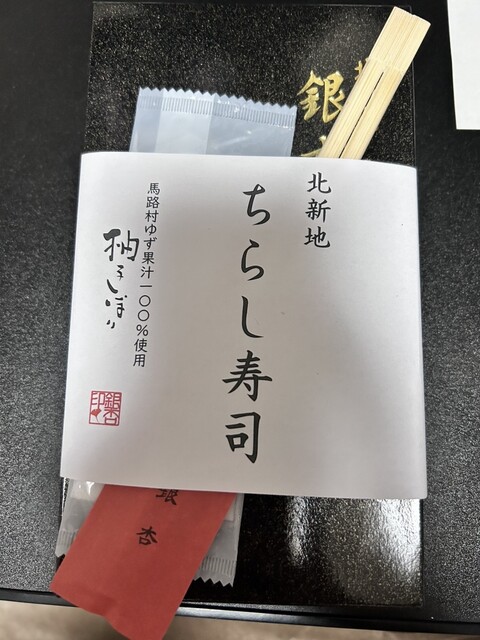 銀
北新地
ちらし寿司
馬路村ゆず果汁一〇〇%使用
柚子しぼり
銀杏
銀杏